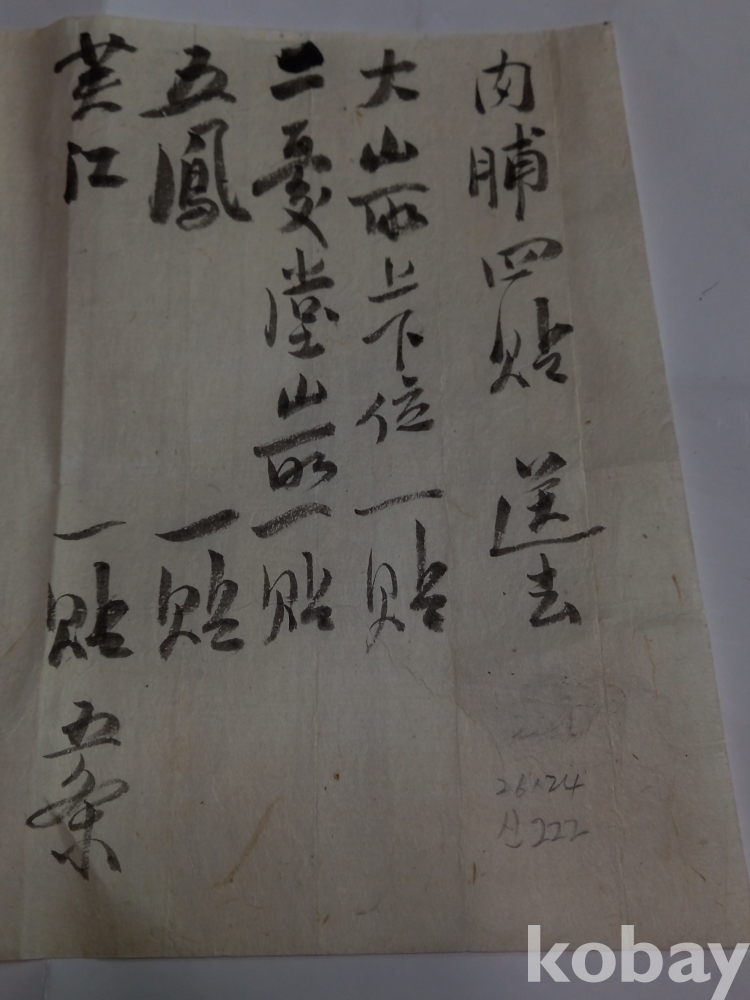 肉脯四貼 送去
大山所上下位 一貼
二憂堂山所一貼
五鳳 一貼
芙江 一貼 五条
26×24
신222
kobay